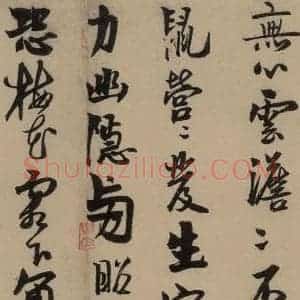 無心雲澹〻
鼠營〻發生
力幽隱
恐梅花零下
Shufaziliao.com